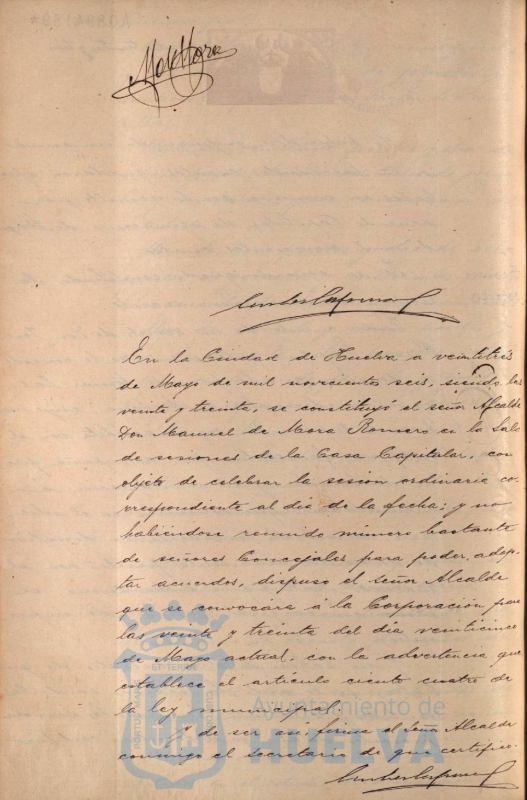 M de Mora
En la Ciudad de Huelva a veintitrés
de Mayo de mil novecientos seis, siendo las
veinte y treinta, se constituyó el señor Alcalde
Don Manuel de Mora Romero en la Sala
de sesiones de la Casa Capitular, con
objeto de celebrar la sesión ordinaria co-
rrespondiente al dia de la fecha; y no
habiéndose reunido número bastante
de señores Concejales para poder adop-
tar acuerdos, dispuso el señor Alcalde
que se convocara á la Corporación para
las veinte y treinta del día veinticinco
de Mayo actual, con la advertencia que
establece el artículo ciento cuatro de
la ley municipal.
Y de ser así, firma el Señor Alcalde
conmigo el secretario de que certifico.
Ayuntamiento de
HUELVA